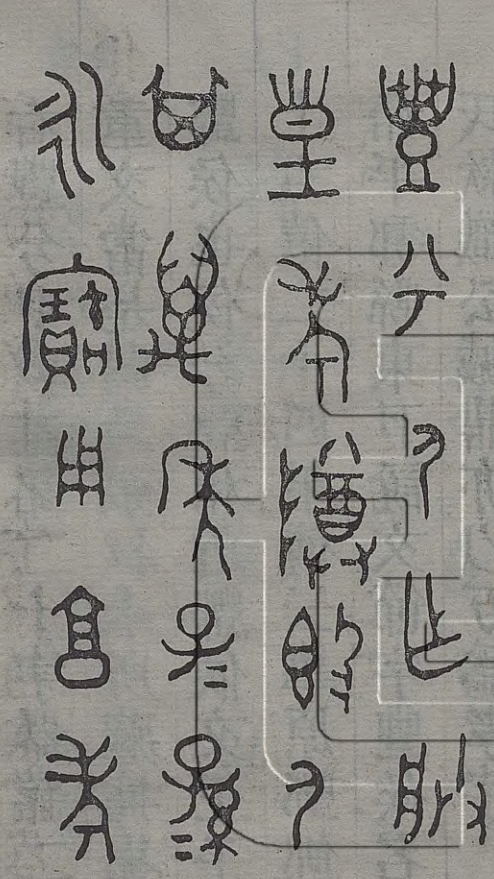 豐兮尸乍朕
皇考尊𣪘尸
其萬年子=孫=
永寶用享考